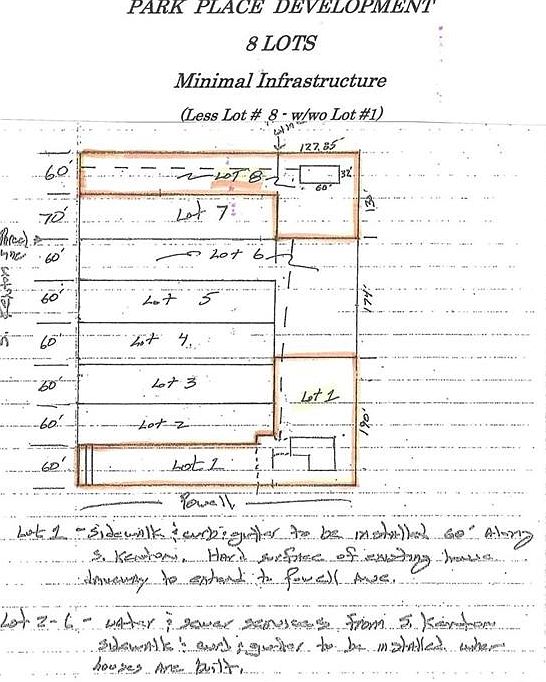 PARK PLACE DEVELOPMENT
8 LOTS
Minimal Infrastructure
(Less Lot # 8 - w/wo Lot #1)
127.85
60' Lot 8 32'
60'
70' Lot 7 130'
Parcel
Line
60' Lot 6
S. Kenton
60' Lot 5 174'
60' Lot 4
60' Lot 3 Lot 1
60' Lot 2 190'
60' Lot 1
Powell
Lot 1 - Sidewalk & curb & gutter to be installed 60' Along
S. Kenton. Hard surface of existing house
driveway to extend to Powell Ave.
Lot 2-6 - water & sewer services from S. Kenton
sidewalk & curb & gutter to be installed when
houses are built.